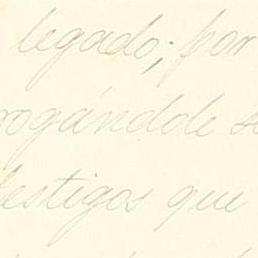 legado; por
rogándole s
testigos que